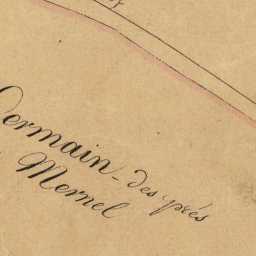 Germain-des prés
Mernel